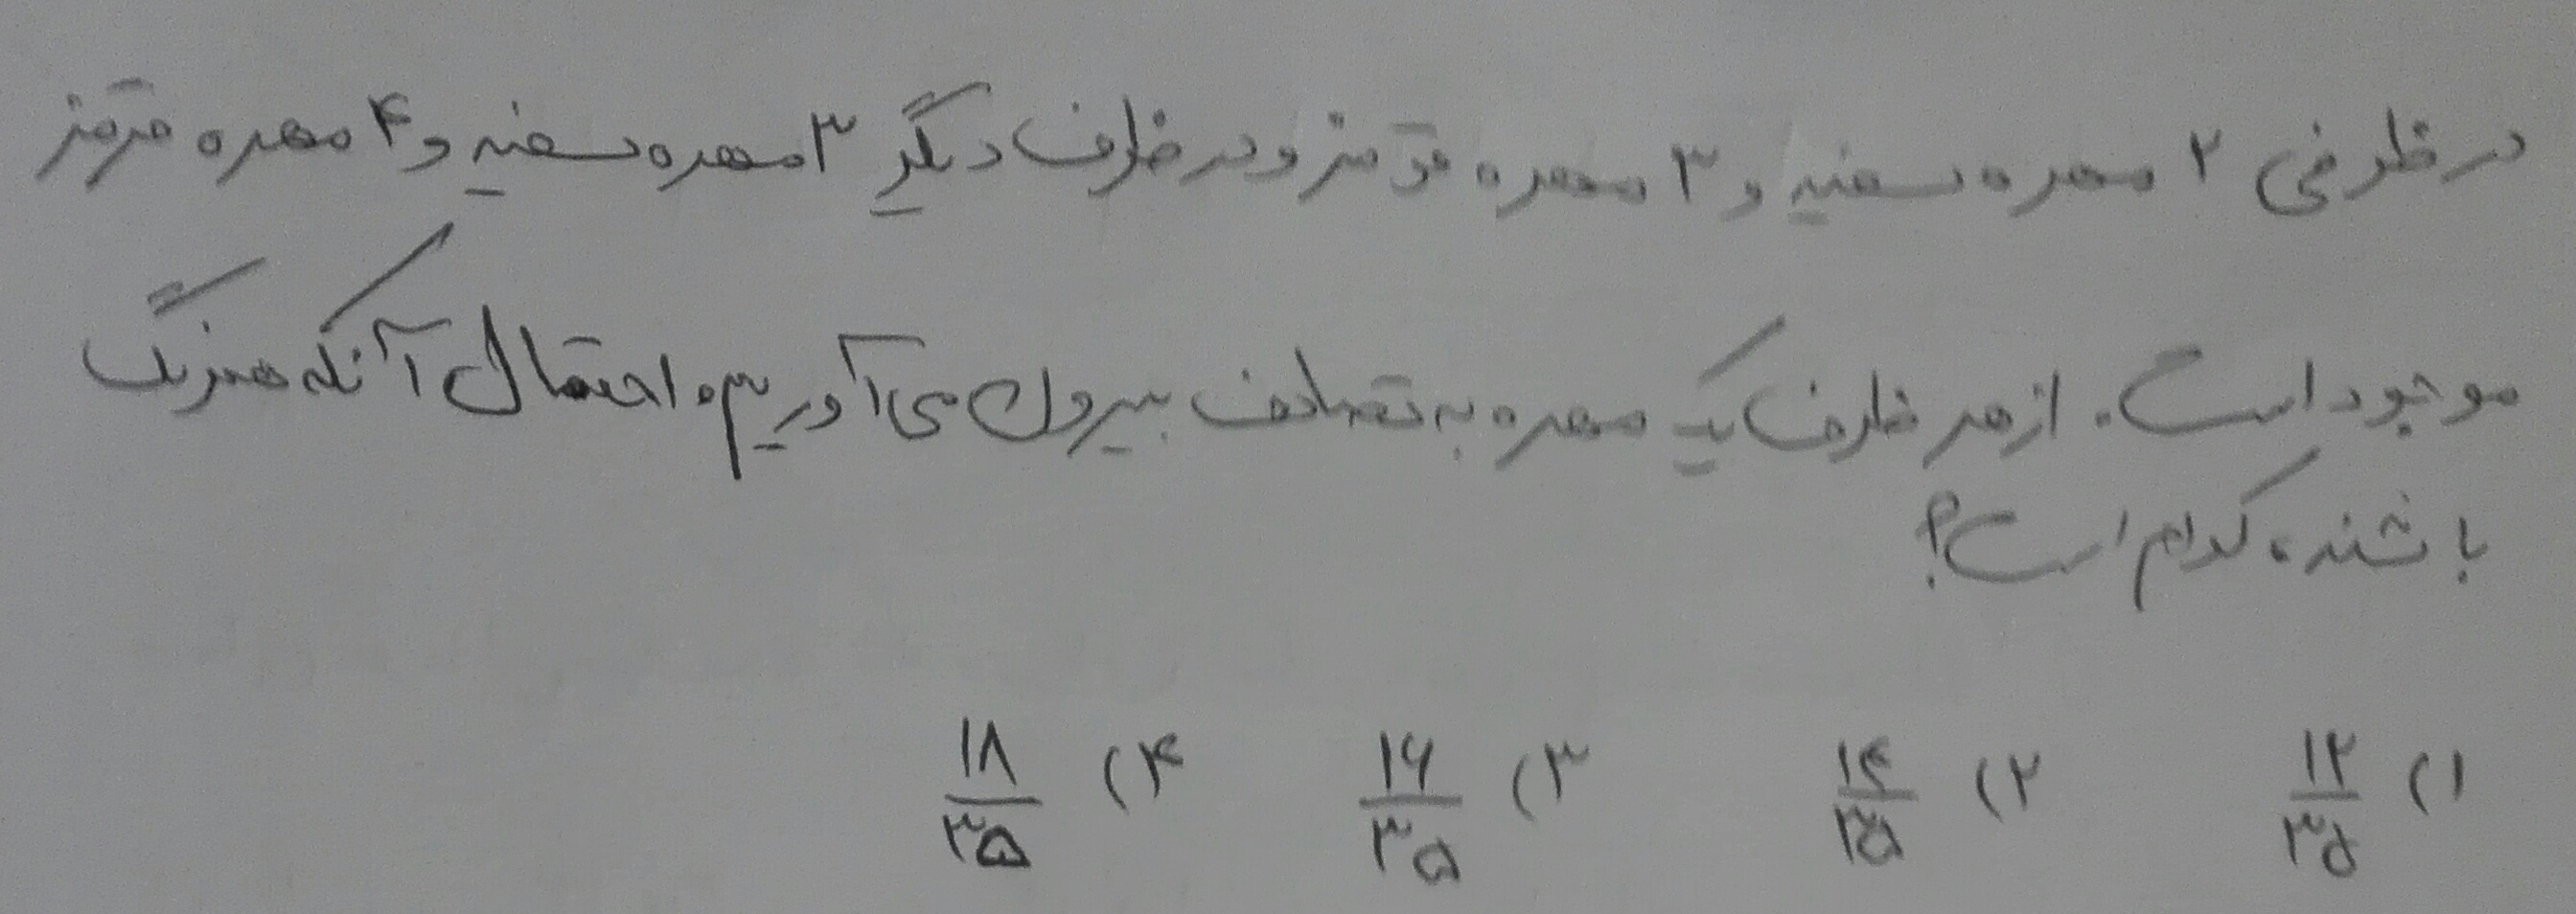 در ظرفی ۲ مهره سفید و ۳ مهره قرمز و در ظرف دیگر ۳ مهره سفید و ۴ مهره قرمز
موجود است. از هر ظرف یک مهره به تصادف بیرون می‌آوریم، احتمال آنکه همرنگ
باشند، کدام است؟
۱) ۱۲/۳۵ ۲) ۱۴/۳۵ ۳) ۱۶/۳۵ ۴) ۱۸/۳۵